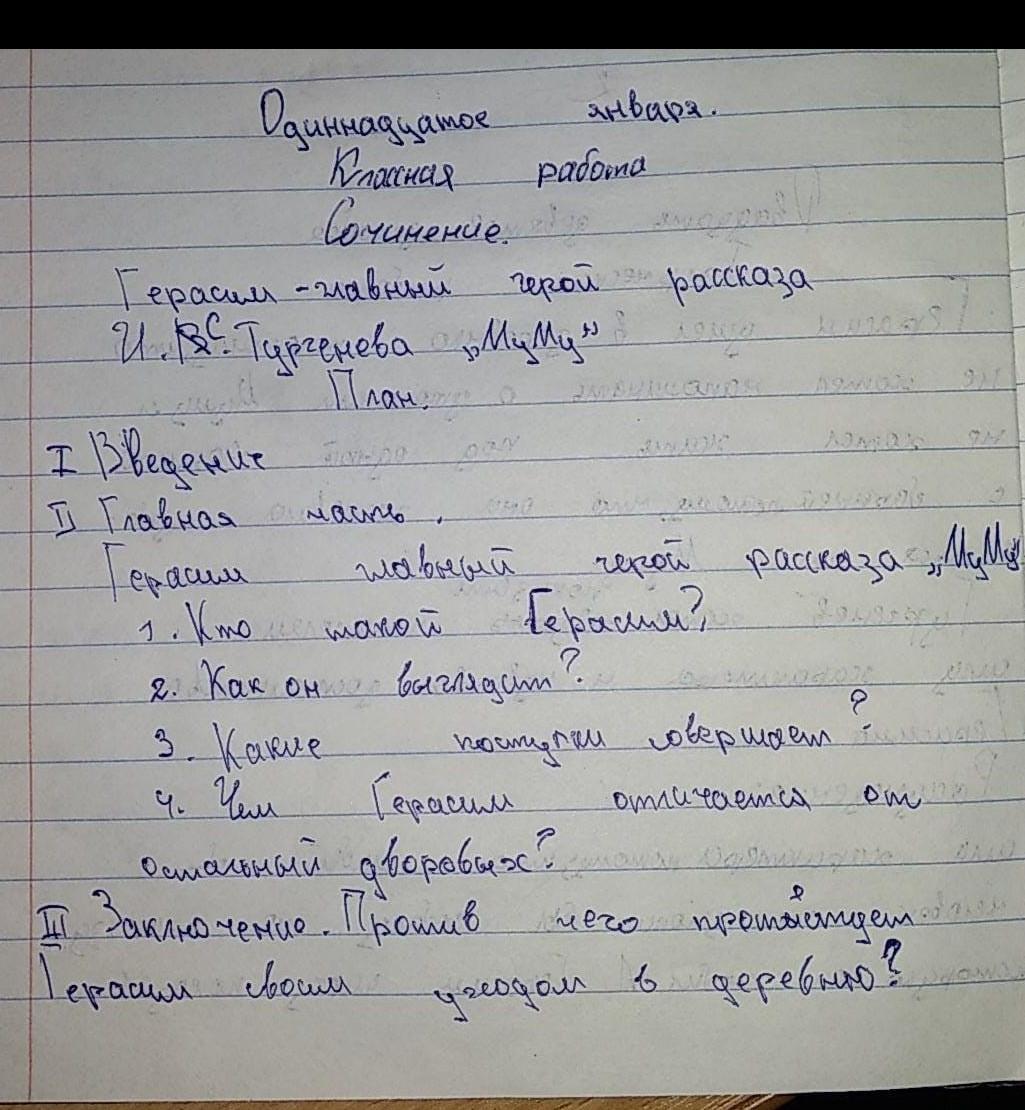 Одиннадцатое января.
Классная работа
Сочинение.
Герасим - главный герой рассказа
И.С. Тургенева „МуМу"
План.
I Введение
II Главная часть.
Герасим главный герой рассказа „МуМу"
1. Кто такой Герасим?
2. Как он выглядит?
3. Какие поступки совершает?
4. Чем Герасим отличается от
остальный дворовых?
III Заключение. Против чего протестует
Герасим своим уходом в деревню?